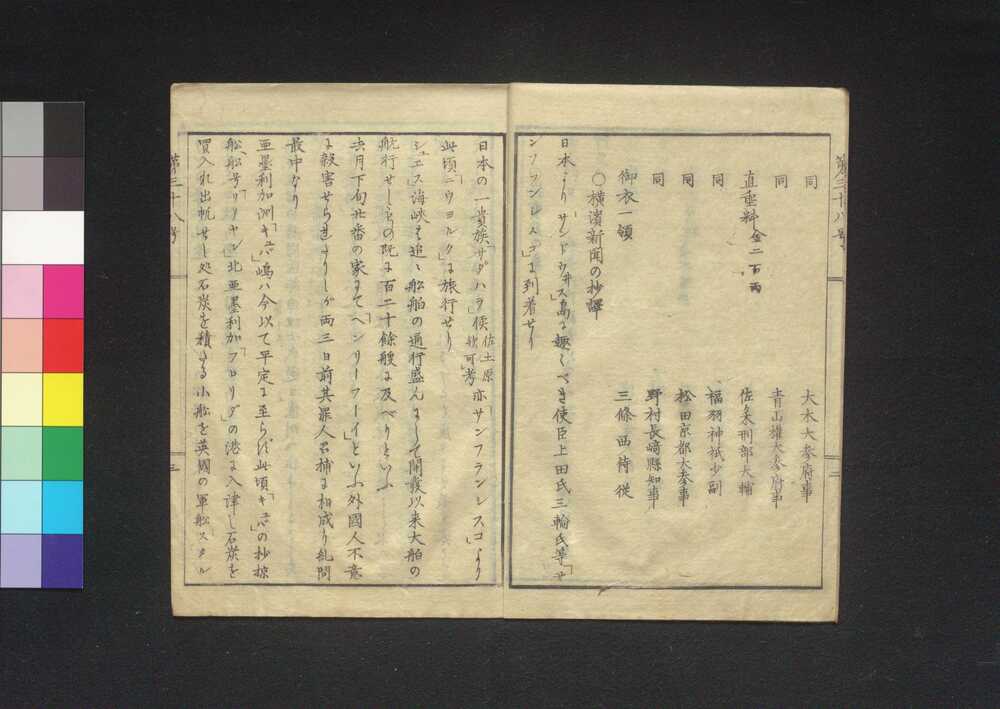 同　大木大參府事
同　青山雄大參府事
直垂料金二百両　佐々木刑部大輔
同　福羽神祇少副
同　松田京都大參事
同　野村長﨑縣知事
御衣一領　三條西待從
〇橫濱新聞の抄譯
日本より「サンドウ井ス」島に趣くべき使臣上田氏三輪氏等「サ
ンフランシスコ」に到着せり
日本の一貴族「サダハラ」侯佐土原歟可考亦サンフランシスコ」より
此頃「ニウヨルク」に旅行せり
「シュエス」海峽も追〻船舶の通行盛んにして開鑿以来大舶の
航行せしもの既に百二十餘艘に及べりといふ
去月下旬廿番の家にて「ヘンリーフーイ」といふ外國人不意
に殺害せられたりしが両三日前其罪人召捕に相成り糺問
最中なり
亜墨利加洲「キュバ」嶋ハ今以て平定に至らず此頃「キュバ」の抄掠
船、舩号「リリヤン」北亜墨利加「フロリダ」の港に入津し石炭を
買入れ出帆せし処石炭を積たる小舩を英國の軍舩「スタル
第三十八号
三
第三十八号
二